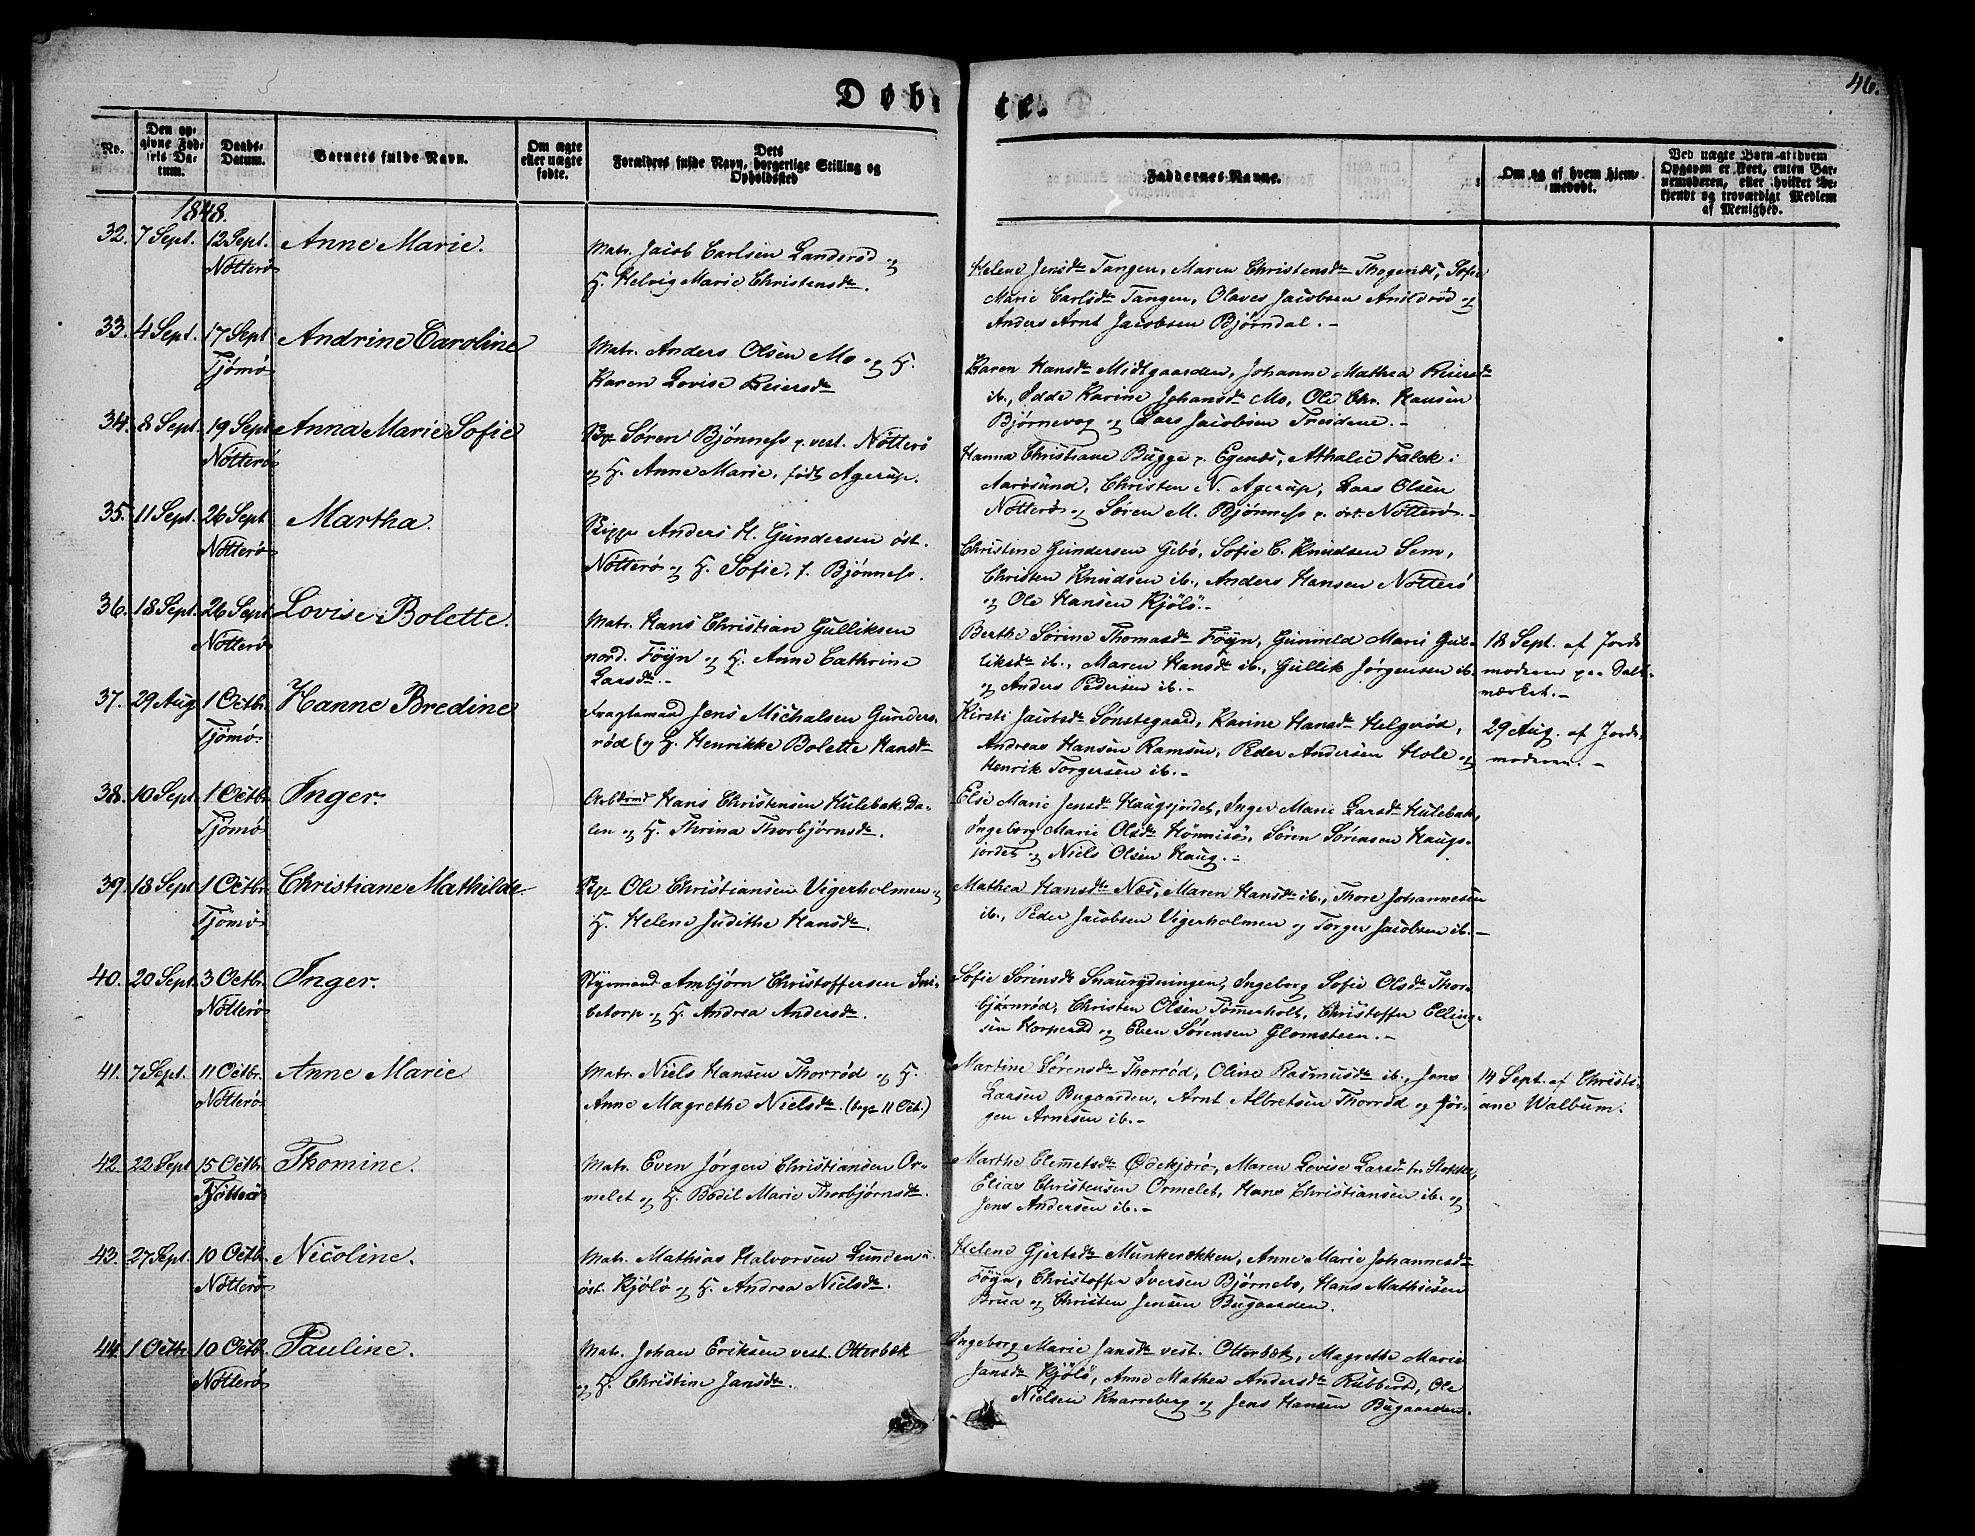 46.
Døbte.
No.
Den opgivne Fødsels Datum.
Daabs-Datum.
Barnets fulde Navn.
Om ægte eller uægte fødte.
Dets Forældres fulde Navn, borgerlige Stilling og Opholdssted
Faddernes Navne.
Om og af hvem hjemmedøbt.
Ved uægte Børn af hvem Opgaven er skeet, enten Barnemoderen, eller hvilket bekjendt og troværdigt Medlem af Menighed.
1848.
32. 7 Sept. 12 Sept. Anne Marie.
Nötterö
Matr. Jacob Carlsen Landeröd og
H. Helvig Marie Christensdr.
Helene Jensdr Tangen, Maren Christensdr Thogenæs, Sofie
Marie Carlsdr Tangen, Olaves Jacobsen Anildröd og
Anders Arnt Jacobsen Bjørndal. -
33. 4 Sept. 17 Sept Andrine Caroline
Tjömö
Matr. Anders Olsen Mo og H.
Karen Lovise Reiersdr
Karen Hansdr Midtgaarden, Johanne Mathea Reiersdr
ib., Odde Karine Johansdr Mo, Ole Chr. Hansen
Bjørnevog og Lars Jacobsen Treidene. -
34. 8 Sept. 19 Sept Anna Marie Sofie
Nötterö
Sören Bjönness p. vest. Nötterö
og H. Anne Marie, født Agerup.
Hanna Christiane Bugge p. Egenæs, Athalie Falck i
Aarösund, Christen N. Agerup, Lars Olsen
Nötterö og Sören M. Bjönness p. öst. Nötterö. -
35. 11 Sept. 26 Sept. Martha.
Nötterö
Skipper Anders H. Gundersen öst.
Nötterö og H. Sofie, f. Bjönness.
Christine Gundersen Gibö, Sofie C. Knudsen Sem,
Christen Knudsen ib., Anders Hansen Nötterö
og Ole Hansen Kjölö. -
36. 18 Sept. 26 Sept Lovise Bolette.
Nötterö
Matr. Hans Christian Gulliksen
nord. Föyn og H. Anne Cathrine
Larsdr. -
Berthe Sörine Thomasdr Föyn, Gunneld Marie Gul-
liksdr ib., Maren Hansdr ib., Gullik Jörgensen ib.
og Anders Pedersen ib. -
18 Sept. af Jorde
moderen paa Salt-
værket. -
37. 29 Aug 1 Octbr. Hanne Bredine
Tjömö.
Fragtemand Jens Michalsen Gunders-
röd og H. Henrikke Bolette Hansdr
Kirsti Jacobsdr Sönstegaard, Karine Hansdr Helgeröd,
Andreas Hansen Ramsen, Peder Andersen Hole og
Henrik Torgersen ib. -
29 Aug. af Jorde-
moderen. -
38. 10 Sept. 1 Octbr. Inger.
Tjömö
Arbdmd Hans Christensen Hulebak Da-
len og H. Thrina Thorbjörnsdr.
Else Marie Jensdr Haugsjordet, Inger Marie Larsdr Hulebak,
Ingeborg Marie Olsdr Hönnisö, Sören Sörensen Haugs-
jordet og Niels Olsen Haug. -
39. 18 Sept 1 Octbr. Christiane Mathilde
Tjömö
Ole Christiansen Vigerholmen og
H. Helene Judithe Hansdr.
Mathea Hansdr Næs, Maren Hansdr ib., Thore Johannesen
ib., Peder Jacobsen Vigerholmen og Torger Jacobsen ib. -
40. 20 Sept. 3 Octbr. Inger.
Nötterö
Styrmand Ambjörn Christoffersen Smi-
betorp og H. Andrea Andersdr.
Sofie Sörensdr Snaurydningen, Ingeborg Sofie Olsdr Thor-
bjørnröd, Christen Olsen Tömmerholt, Christoffer Elling-
sen Korperöd og Even Sörensen Glomsteen. -
41. 7 Sept. 11 Octbr. Anne Marie
Nötterö
Matr. Niels Hansen Thorröd og H.
Anne Magrethe Nielsdr. (begr. 11 Oct.)
Martine Sörensdr Thorröd, Oline Rasmusdr ib., Jens
Larsen Bugaarden, Arnt Albretsen Thorröd og Jör-
gen Arnesen ib. -
14 Sept. af Christi-
ane Walbum.
42. 22 Sept 15 Octbr. Thomine.
Matr. Even Jörgen Christiansen Or-
melet og H. Bodil Marie Thorbjörnsdr.
Marthe Clemetsdr Ødekjærö, Maren Lovise Larsdr
Elias Christensen Ormelet, Hans Christiansen ib. og
Jens Andersen ib. -
43. 27 Sept. 10 Octb. Nicoline.
Nötterö
Matr. Mathias Halvorsen Lunden
öst. Kjölö og H. Andrea Nielsdr.
Helene Gjertsdr Munkerækken, Anne Marie Johannesdr
Föyn, Christoffer Iversen Bjørnebo, Hans Mathiesen
Brua og Christen Jensen Bugaarden.
44. 1 Octbr. 10 Octb. Pauline.
Nötterö
Matr. Johan Eriksen vest. Otterbæk
og H. Christine Jansdr.
Ingeborg Marie Jansdr vest. Otterbæk, Magrethe Marie
Jansdr Kjölö, Anne Mathea Andersdr Rubberöd, Ole
Nielsen Knarreberg og Jens Hansen Bugaarden.